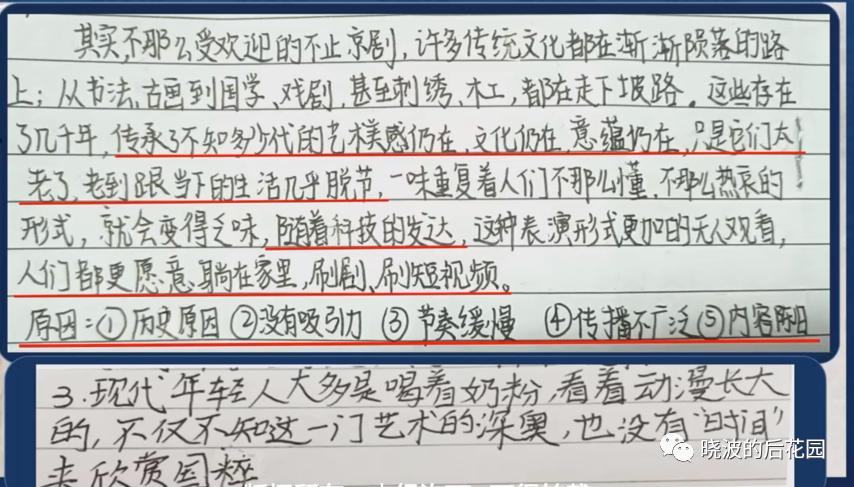 其实,不那么受欢迎的不止京剧,许多传统文化都在渐渐陨落的路
上;从书法、古画到国学、戏剧,甚至刺绣、木工,都在走下坡路。这些存在
了几千年,传承了不知多少代的艺术美感仍在,文化仍在,意蕴仍在,只是它们太
老了,老到跟当下的生活几乎脱节,一味重复着人们不那么懂、不那么热衷的
形式,就会变得乏味,随着科技的发达,这种表演形式更加的无人观看,
人们都更愿意躺在家里,刷剧、刷短视频。
原因:①历史原因 ②没有吸引力 ③节奏缓慢 ④传播不广泛⑤内容陈旧
3.现代年轻人大多是喝着奶粉,看着动漫长大
的,不仅不知这一门艺术的深奥,也没有“时间”
去欣赏国粹
晓波的后花园